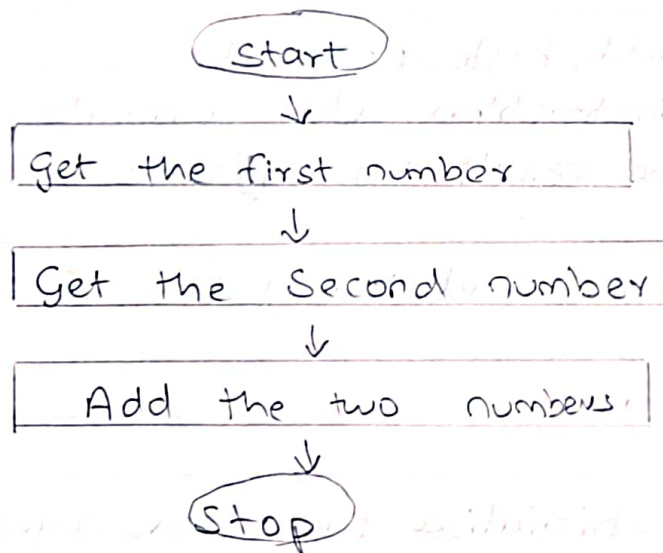 Start
Get the first number
Get the Second number
Add the two numbers.
Stop